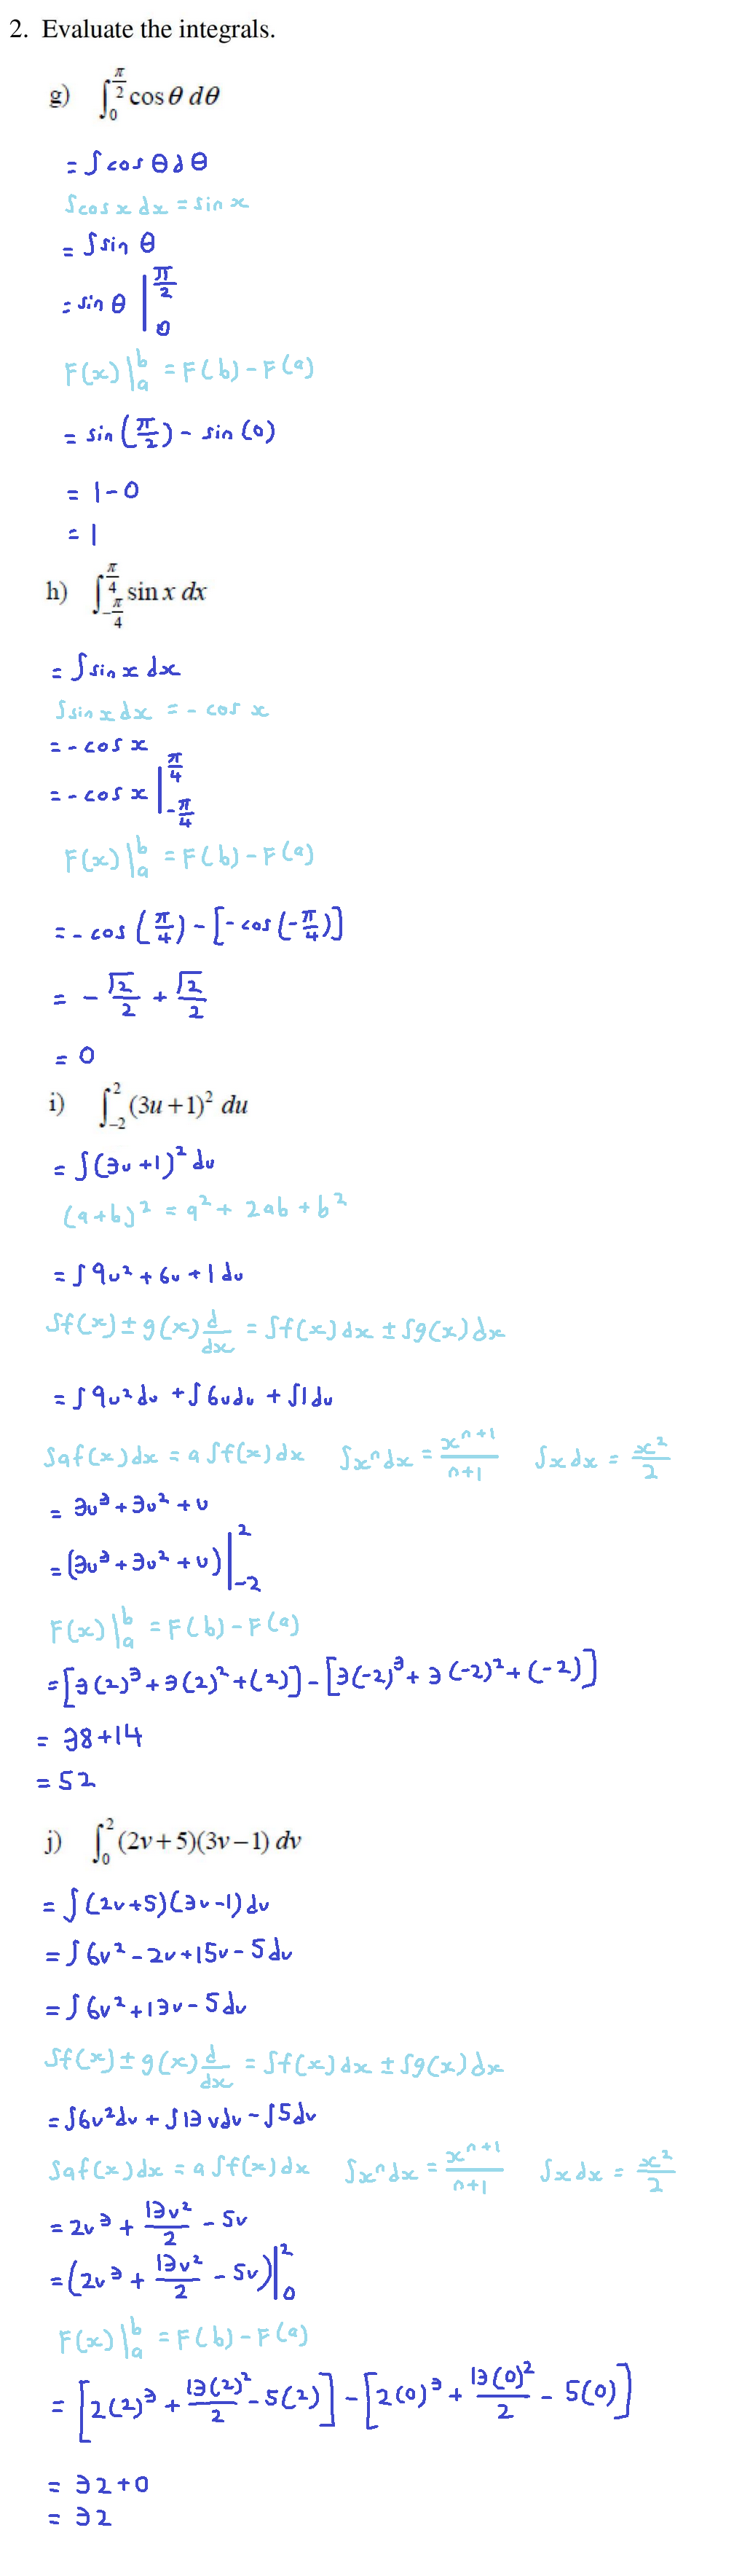 2. Evaluate the integrals.
g) ∫₀^(π/2) cos θ dθ
= ∫ cos θ dθ
∫ cos x dx = sin x
= ∫ sin θ
= sin θ |₀^(π/2)
F(x)|ₐᵇ = F(b) - F(a)
= sin (π/2) - sin (0)
= 1 - 0
= 1
h) ∫_(-π/4)^(π/4) sin x dx
= ∫ sin x dx
∫ sin x dx = - cos x
= - cos x
= - cos x |_(-π/4)^(π/4)
F(x)|ₐᵇ = F(b) - F(a)
= - cos (π/4) - [- cos (-π/4)]
= - √2/2 + √2/2
= 0
i) ∫₋₂² (3u + 1)² du
= ∫ (3u + 1)² du
(a + b)² = a² + 2ab + b²
= ∫ 9u² + 6u + 1 du
∫ f(x) ± g(x) d/dx = ∫ f(x) dx ± ∫ g(x) dx
= ∫ 9u² du + ∫ 6u du + ∫ 1 du
∫ af(x) dx = a ∫ f(x) dx ∫ xⁿ dx = xⁿ⁺¹/(n+1) ∫ x dx = x²/2
= 3u³ + 3u² + u
= (3u³ + 3u² + u)|₋₂²
F(x)|ₐᵇ = F(b) - F(a)
= [3(2)³ + 3(2)² + (2)] - [3(-2)³ + 3(-2)² + (-2)]
= 38 + 14
= 52
j) ∫₀² (2v + 5)(3v - 1) dv
= ∫ (2v + 5)(3v - 1) dv
= ∫ 6v² - 2v + 15v - 5 dv
= ∫ 6v² + 13v - 5 dv
∫ f(x) ± g(x) d/dx = ∫ f(x) dx ± ∫ g(x) dx
= ∫ 6v² dv + ∫ 13 v dv - ∫ 5 dv
∫ af(x) dx = a ∫ f(x) dx ∫ xⁿ dx = xⁿ⁺¹/(n+1) ∫ x dx = x²/2
= 2v³ + 13v²/2 - 5v
= (2v³ + 13v²/2 - 5v)|₀²
F(x)|ₐᵇ = F(b) - F(a)
= [2(2)³ + 13(2)²/2 - 5(2)] - [2(0)³ + 13(0)²/2 - 5(0)]
= 32 + 0
= 32